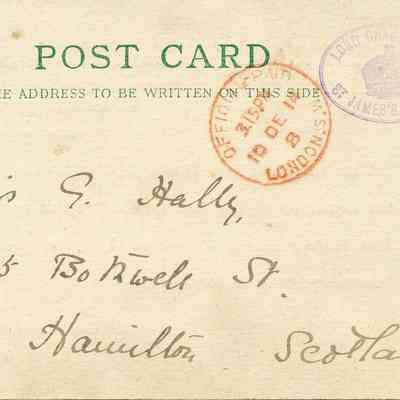 POST CARD
HE ADDRESS TO BE WRITTEN ON THIS SIDE
OFFICIAL PAID
3.15PM
10 DE 14
8
LONDON.S.W.
LORD CHA
ST JAMES'S
is G. Hally,
5 Bothwell St.
Hamilton Scotla